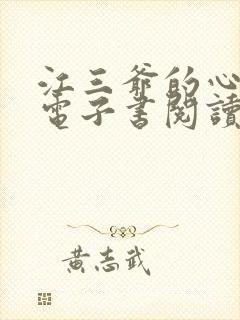 江三爷的心
電子書閱讀
黃志武